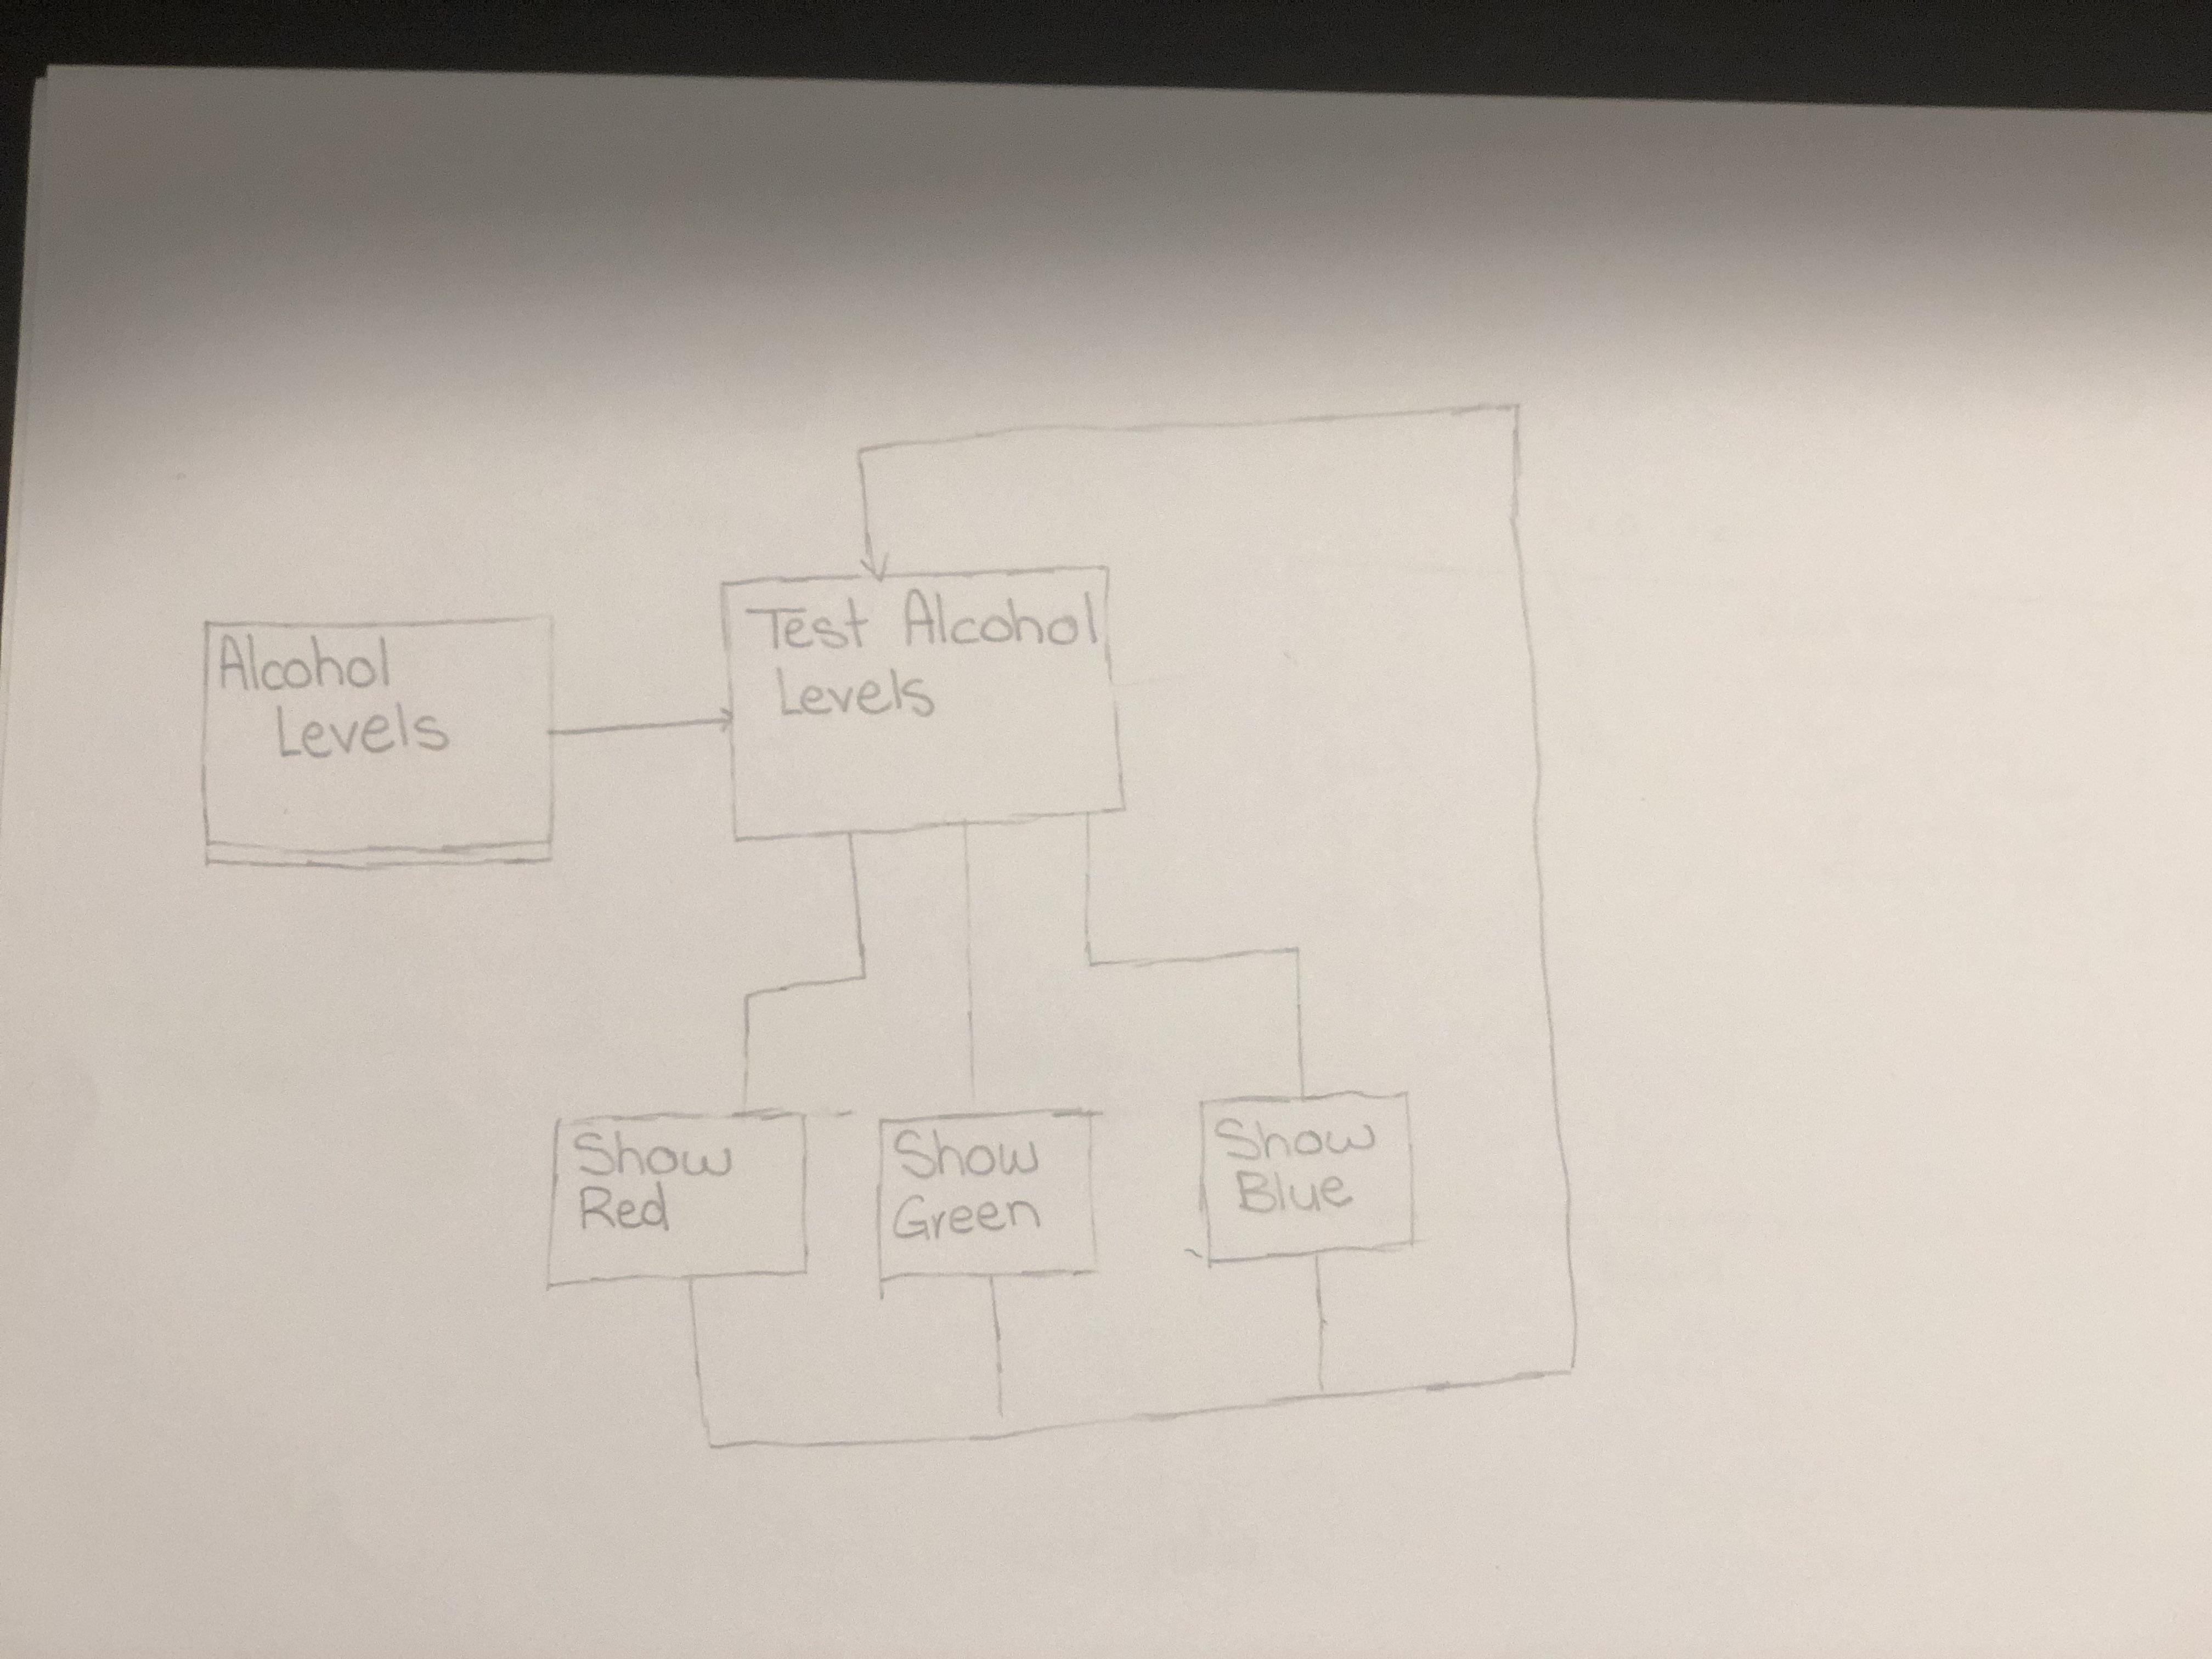 Alcohol
Levels
Test Alcohol
Levels
Show
Red
Show
Green
Show
Blue